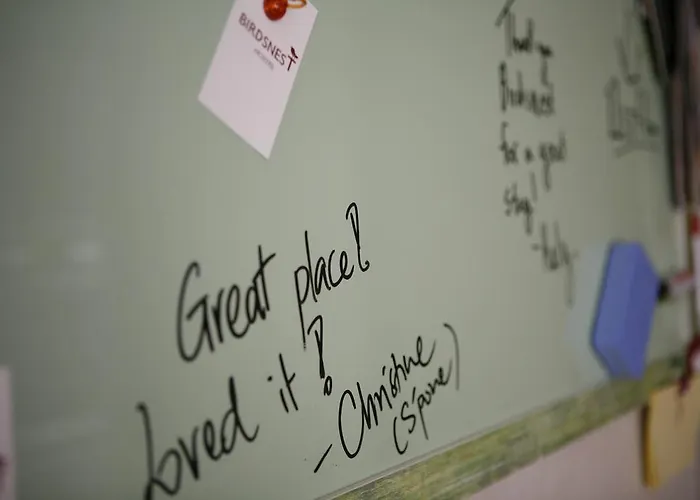 BIRDSNEST
HOSTEL
Great place!
Loved it!
- Christine
(S'pore)
Thank you
Birdsnest
for a great
stay!